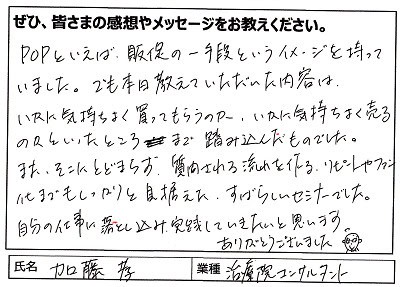 ぜひ、皆さまの感想やメッセージをお教えください。
POPといえば、販促の一手段というイメージを持って
いました。でも本日教えていただいた内容は、
いかに気持ちよく買ってもらうのか、いかに気持ちよく売る
のかといったところまで踏み込んだものでした。
また、そこにとどまらず、質問される流れを作る、リピートやファン
化までもしっかりと見据えた、すばらしいセミナーでした。
自分の仕事に落とし込み実践していきたいと思います。
ありがとうございました
氏名 加藤 孝 業種 治療院コンサルタント